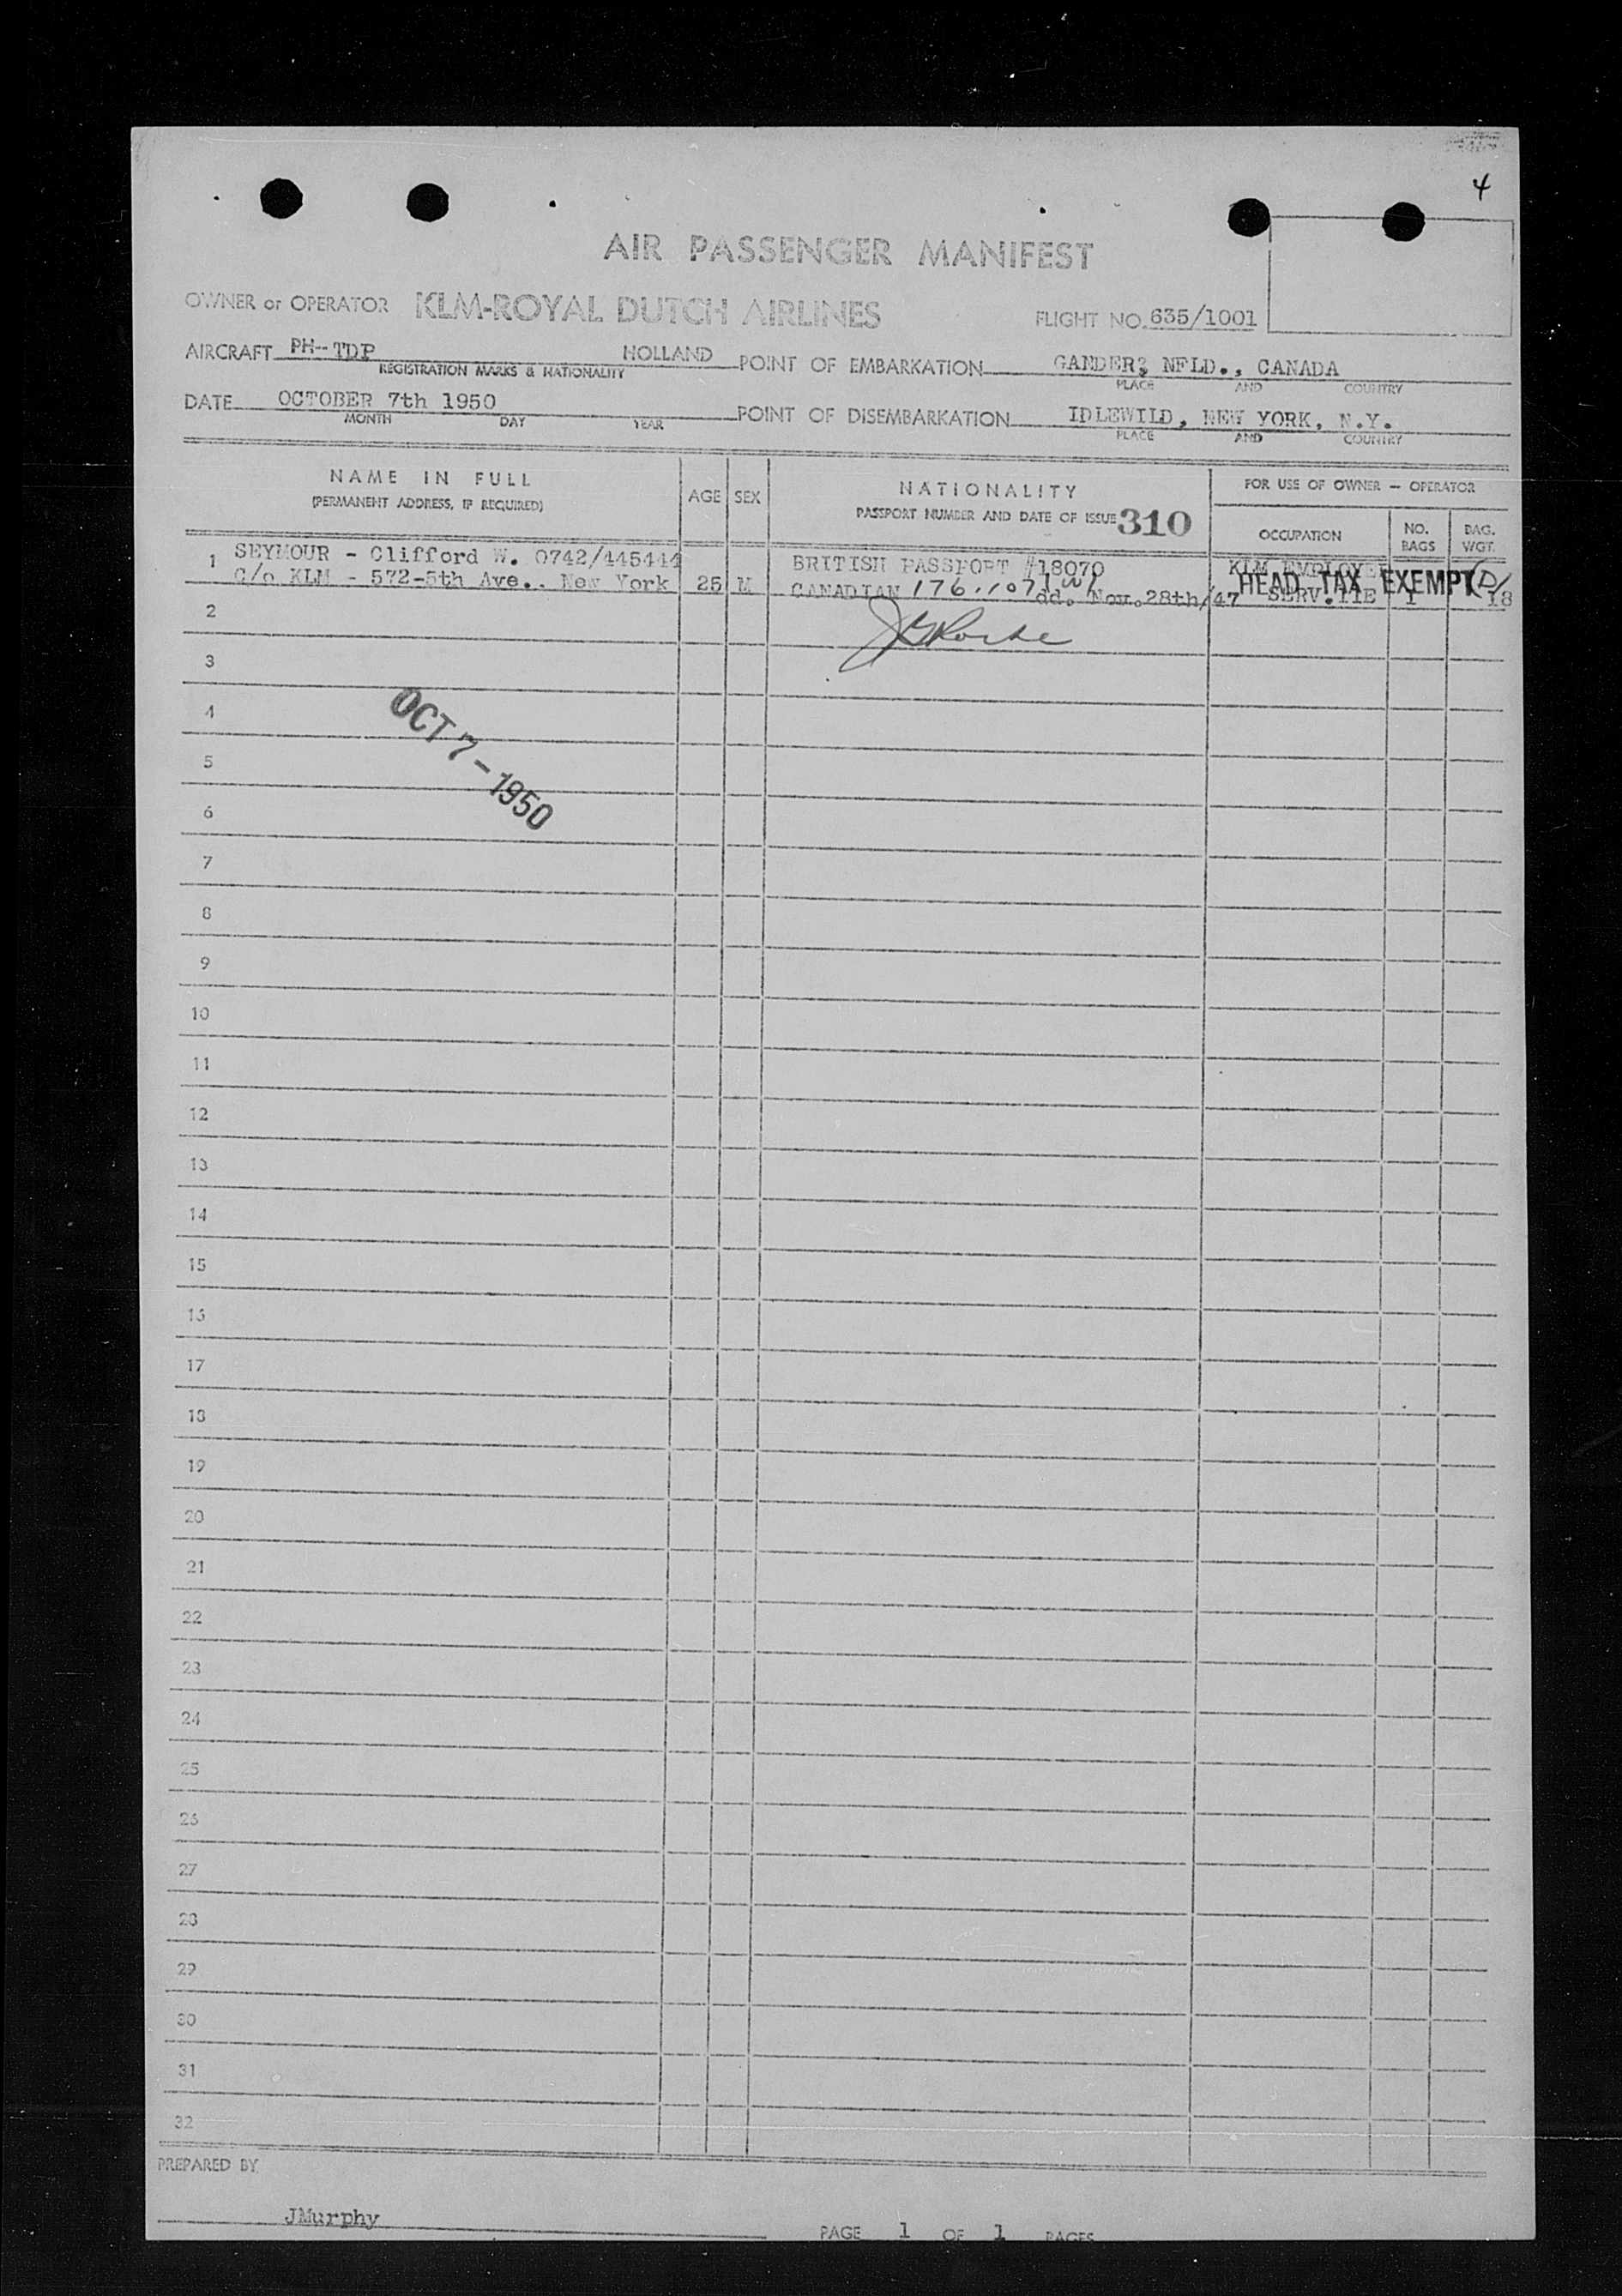 4
AIR PASSENGER MANIFEST
OWNER or OPERATOR KLM-ROYAL DUTCH AIRLINES
FLIGHT NO. 635/1001
AIRCRAFT PH--TDP HOLLAND
REGISTRATION MARKS & NATIONALITY
POINT OF EMBARKATION GANDER, NFLD., CANADA
PLACE AND COUNTRY
DATE OCTOBER 7th 1950
MONTH DAY YEAR
POINT OF DISEMBARKATION IDLEWILD, NEW YORK, N.Y.
PLACE AND COUNTRY
NAME IN FULL
(PERMANENT ADDRESS, IF REQUIRED)
AGE SEX
NATIONALITY
PASSPORT NUMBER AND DATE OF ISSUE 310
FOR USE OF OWNER — OPERATOR
OCCUPATION
NO. BAGS
BAG. WGT.
1 SEYMOUR - Clifford W. 0742/445444
C/o KLM - 572-5th Ave., New York 25 M
BRITISH PASSPORT #18070
CANADIAN 176.107 dd. Nov.28th/47
KLM EMPLOYEE
HEAD TAX EXEMPT
SERV. 1 18
2
3
4
OCT 7 - 1950
5
6
7
8
9
10
11
12
13
14
15
16
17
18
19
20
21
22
23
24
25
26
27
28
29
30
31
32
PREPARED BY
JMurphy
PAGE 1 OF 1 PAGES